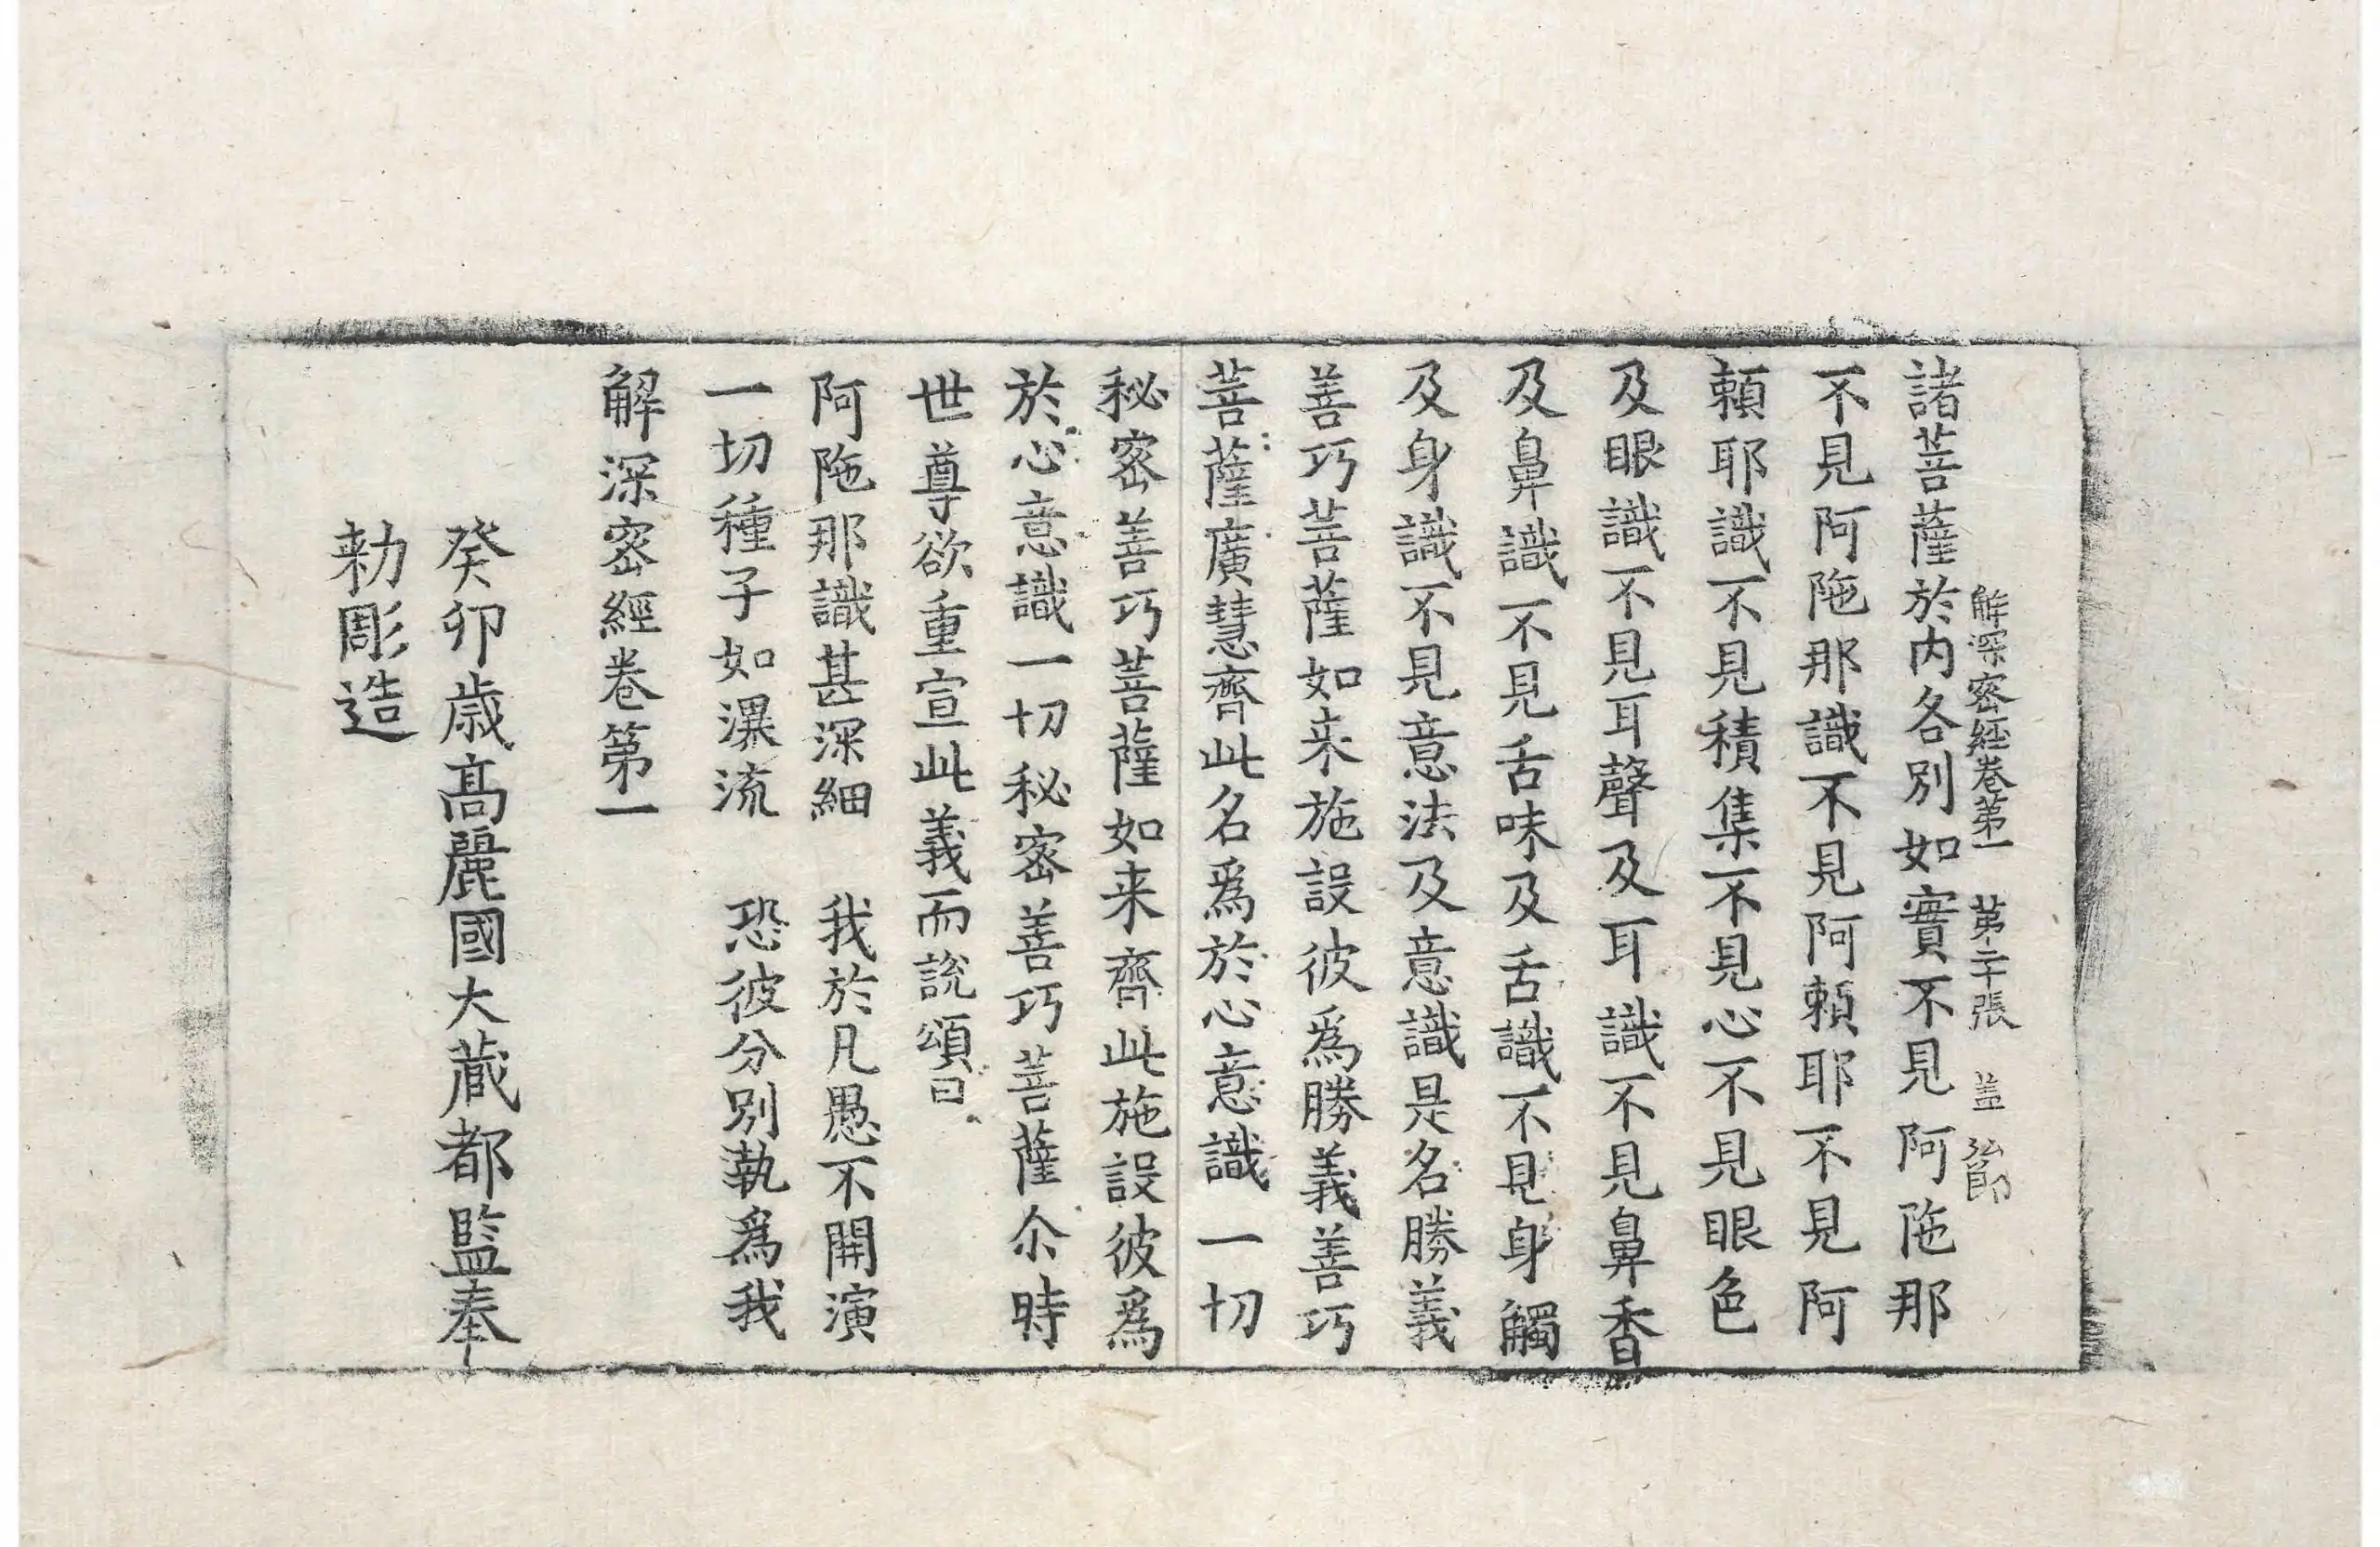 解深密經卷第一 第二十張 盖
諸菩薩於内各別如實不見阿陁那
不見阿陁那識不見阿頼耶不見阿
頼耶識不見積集不見心不見眼色
及眼識不見耳聲及耳識不見鼻香
及鼻識不見舌味及舌識不見身觸
及身識不見意法及意識是名勝義
善巧菩薩如来施設彼爲勝義善巧
菩薩廣慧齊此名爲於心意識一切
秘密善巧菩薩如来齊此施設彼爲
於心意識一切秘密善巧菩薩尒時
世尊欲重宣此義而說頌曰
阿陁那識甚深細 我於凡愚不開演
一切種子如瀑流 恐彼分別執爲我
解深密經卷第一
癸卯歳髙麗國大蔵都監奉
勑彫造